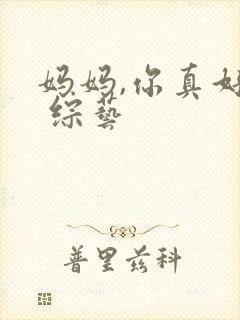 妈妈,你真好
综藝
普里兹科